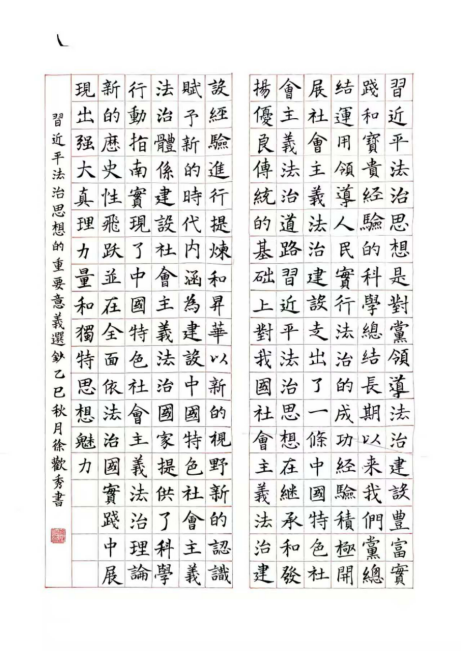 習近平法治思想是對黨領導法治建設豐富實
踐和寶貴經驗的科學總結長期以来我們黨總
結運用領導人民實行法治的成功經驗積極開
展社會主義法治建設走出了一條中國特色社
會主義法治道路習近平法治思想在繼承和發
揚優良傳統的基础上對我國社會主義法治建
設經驗進行提煉和昇華以新的視野新的認識
賦予新的時代内涵為建設中國特色社會主義
法治體係建設社會主義法治國家提供了科學
行動指南實現了中國特色社會主義法治理論
新的厯史性飛跃並在全面依法治國實踐中展
現出强大真理力量和獨特思想魅力
習近平法治思想的重要意義選鈔乙巳秋月徐歡秀書